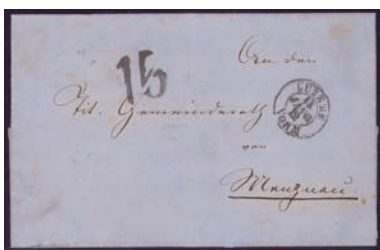 15
An den
Tit. Gemeinderath
von
Menznau.
LUZERN